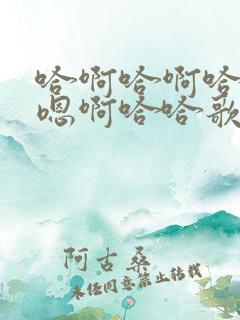 哈啊哈啊哈
嗯啊哈哈歌
阿古桑
未经同意禁止转载